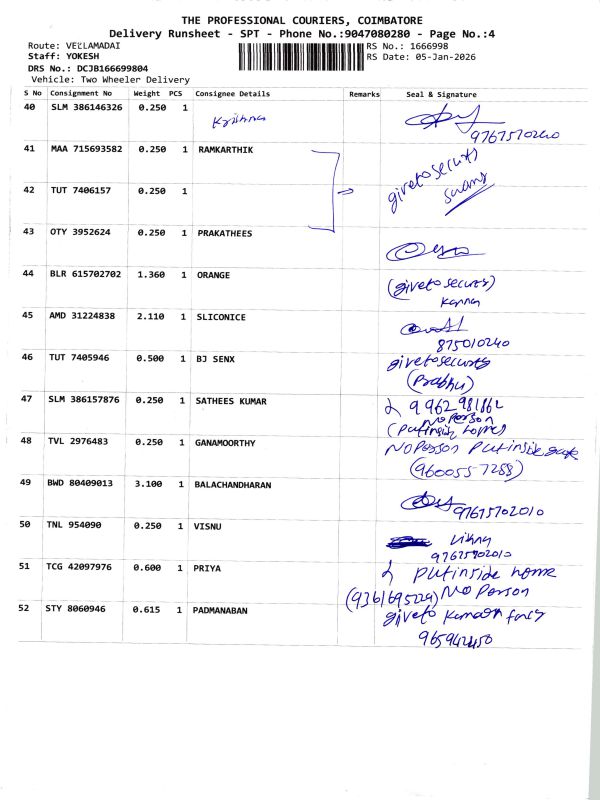 THE PROFESSIONAL COURIERS, COIMBATORE
Delivery Runsheet - SPT - Phone No.:9047080280 - Page No.:4
Route: VELLAMADAI
RS No.: 1666998
Staff: YOKESH
RS Date: 05-Jan-2026
DRS No.: DCJB166699804
Vehicle: Two Wheeler Delivery
S No Consignment No Weight PCS Consignee Details Remarks Seal & Signature
40 SLM 386146326 0.250 1 Krishna
41 MAA 715693582 0.250 1 RAMKARTHIK
giveto security
42 TUT 7406157 0.250 1
43 OTY 3952624 0.250 1 PRAKATHEES
44 BLR 615702702 1.360 1 ORANGE
(giveto security)
Kanna
45 AMD 31224838 2.110 1 SLICONICE
875010240
46 TUT 7405946 0.500 1 BJ SENX
giveto security
(Prabhu)
47 SLM 386157876 0.250 1 SATHEES KUMAR
9962981862
No Person
(Putinside home)
48 TVL 2976483 0.250 1 GANAMOORTHY
No Person Putinside
(9600557288)
49 BWD 80409013 3.100 1 BALACHANDHARAN
97675702010
50 TNL 954090 0.250 1 VISNU
51 TCG 42097976 0.600 1 PRIYA
Putinside home
(9361695229) No Person
52 STY 8060946 0.615 1 PADMANABAN
giveto